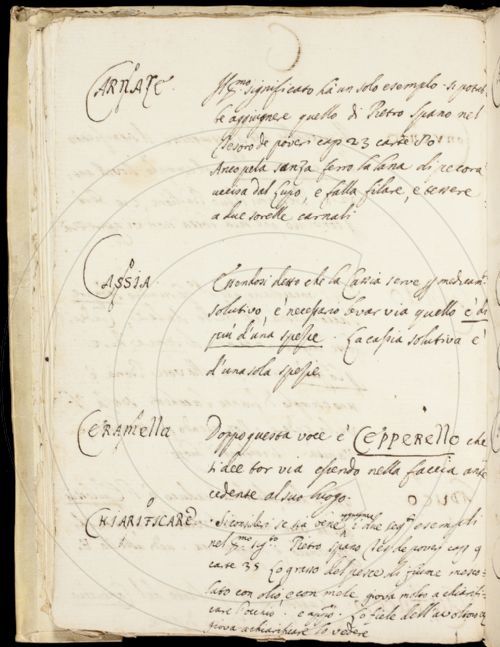 C
CARNALE.
Il pmo significato hà un solo esempio. si potreb-
be aggiugnere quello di Pietro Spano nel
Tesoro de poveri cap 23 carte 80
Anco pela sanza ferro la lana di pecora
uccisa dal Lupo, e falla filare, e tessere
a due sorelle carnali
CASSIA.
Essendosi detto che la Cassia serve p medicam
solutivo, è necessario levar via quello è di
piu d'una spezie. La cassia solutiva è
d'una sola spezie.
CERAMELLA
Doppo questa voce è CEPPERELLO che
si dee tor via essendo nella faccia ante
cedente al suo luogo.
CHIARIFICARE
Si consideri se stia bene i due esempli
nel pmo Pietro Spano Tes de poveri cap 9
carte 35 Lo grasso del pesce di fiume mesco-
lato con olio e con mele, giova molto a chiarifi-
care l'occhio. Lo fiele dell'avoltore
giova a chiarificare lo vedere